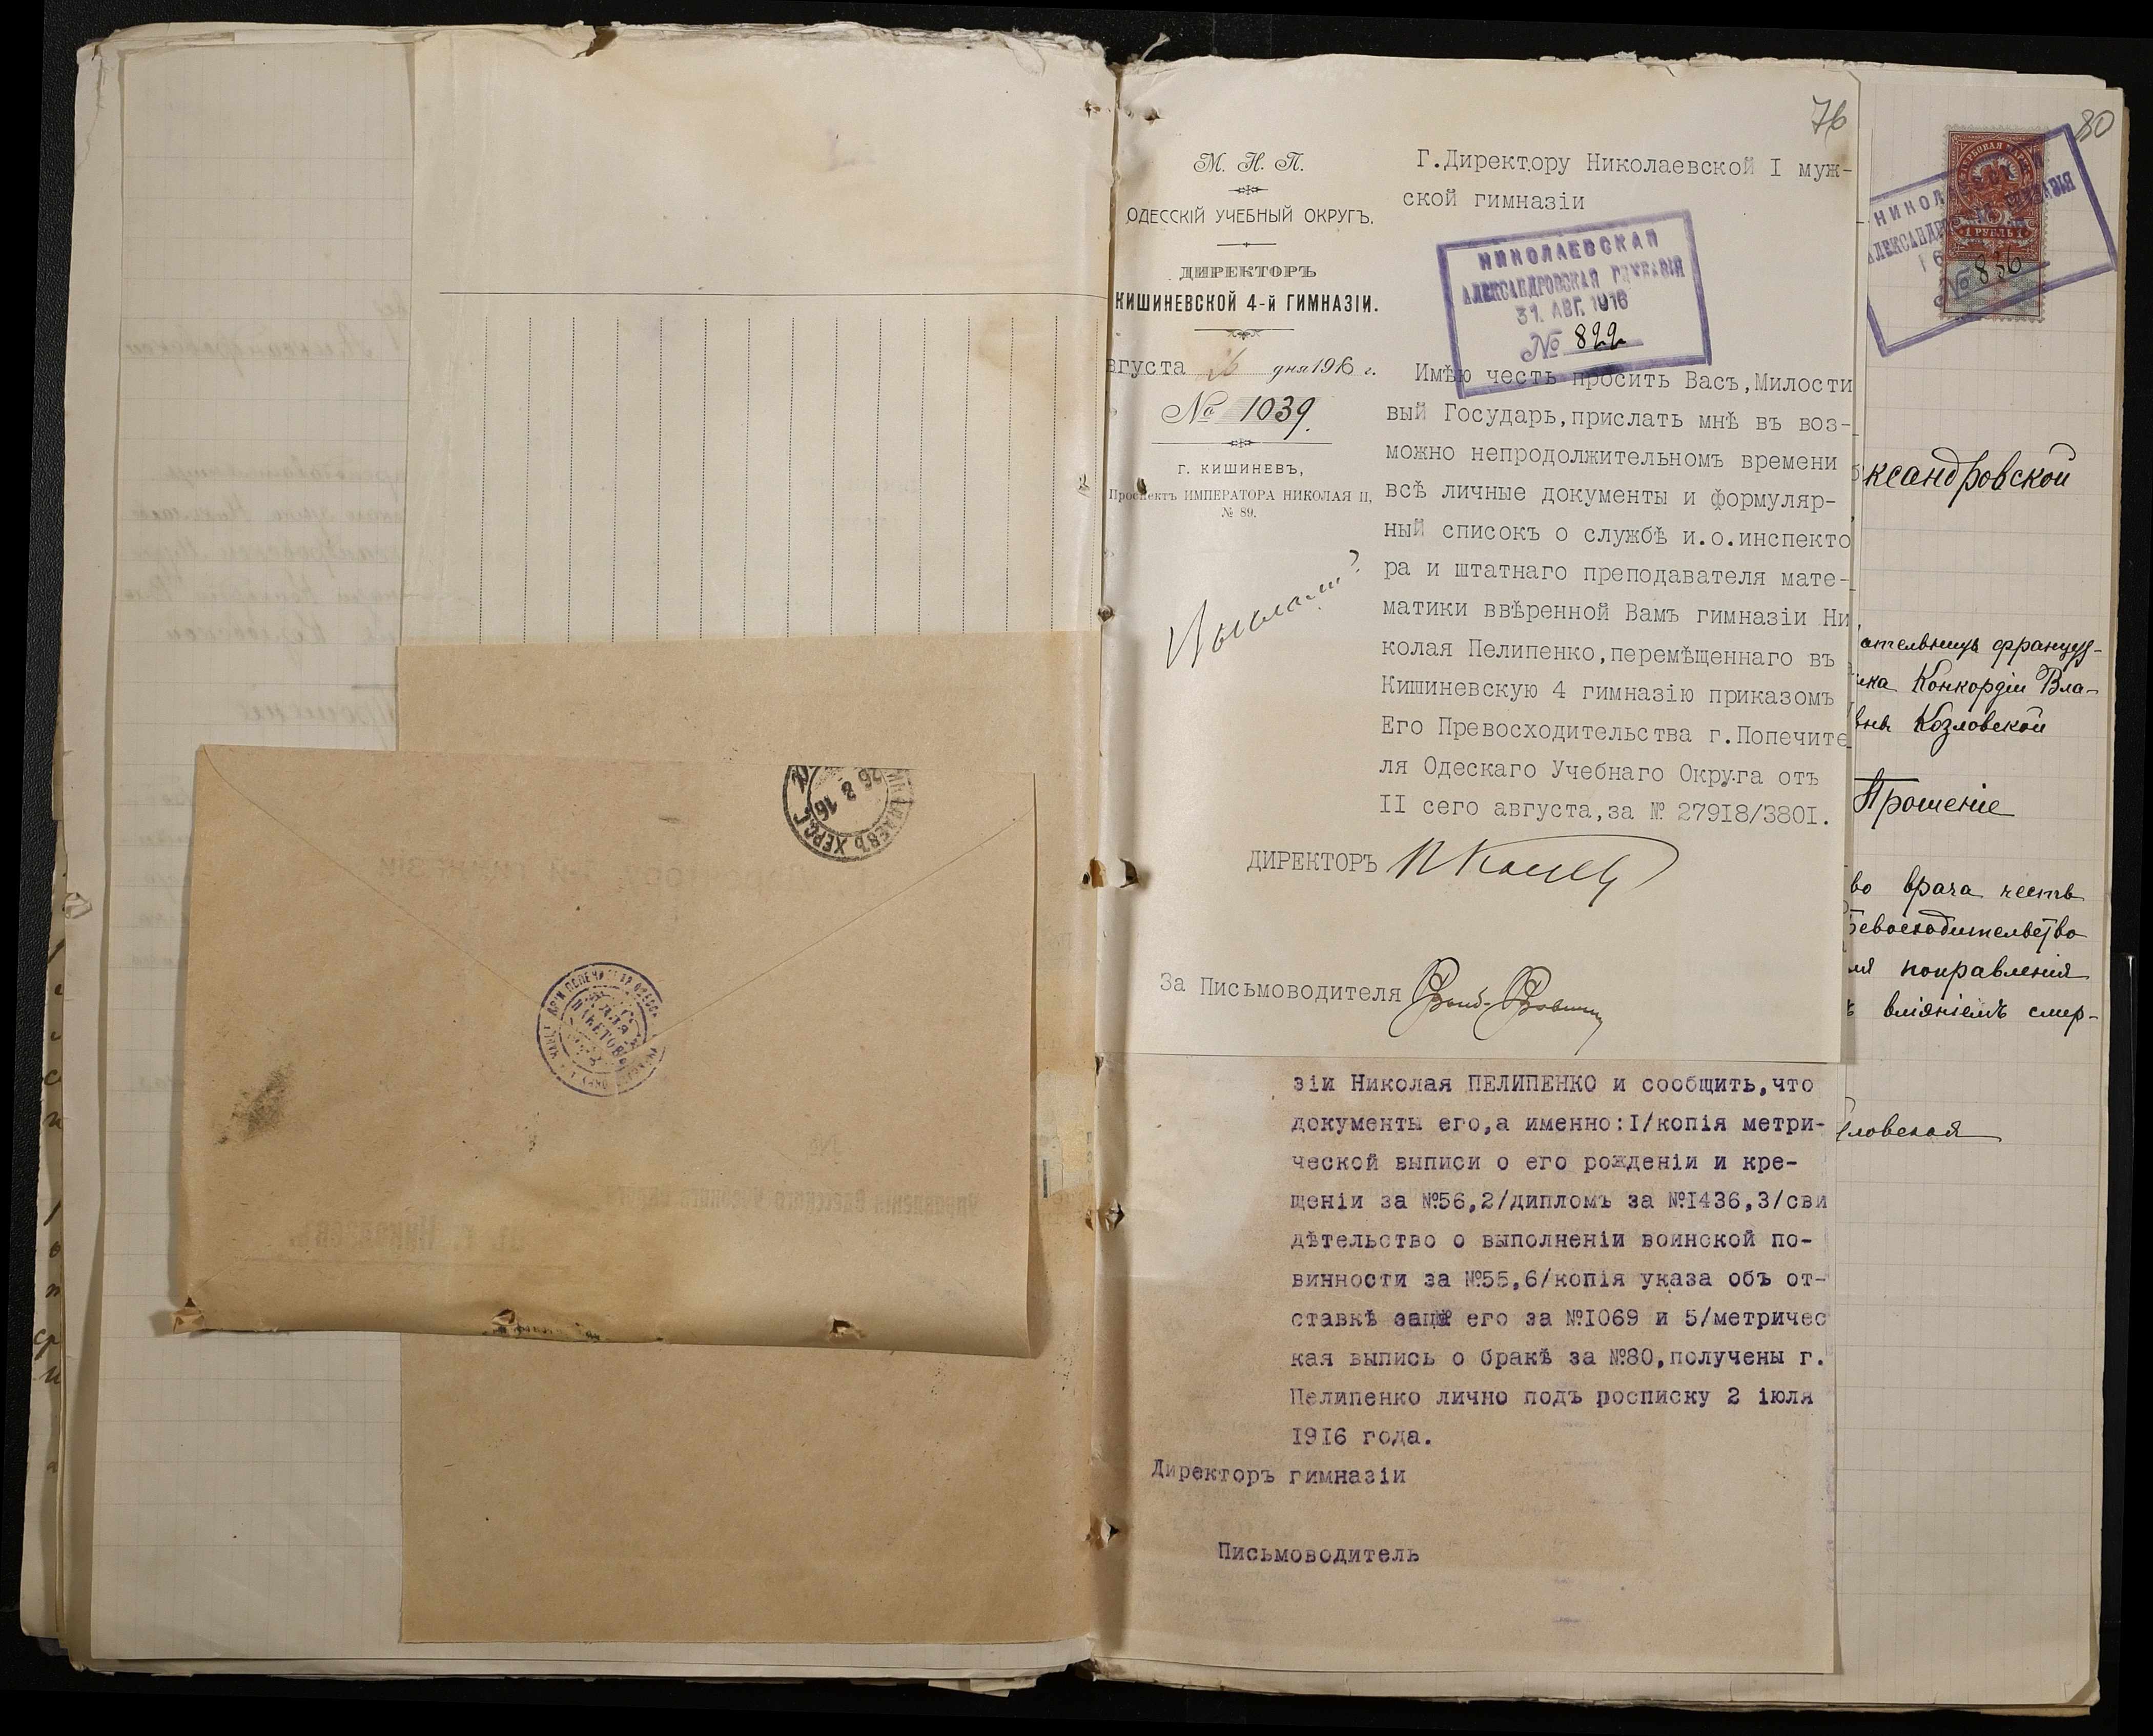 76
М. Н. П.
ОДЕССКІЙ УЧЕБНЫЙ ОКРУГЪ.
ДИРЕКТОРЪ
КИШИНЕВСКОЙ 4-й ГИМНАЗІИ.
вгуста 26 дня 1916 г.
№ 1039.
г. КИШИНЕВЪ,
Проспектъ ИМПЕРАТОРА НИКОЛАЯ II,
№ 89.
Г.Директору Николаевской I муж-
ской гимназіи
НИКОЛАЕВСКАЯ
АЛЕКСАНДРОВСКАЯ ГИМНАЗІЯ
31. АВГ. 1916
№ 822
Имѣю честь просить Васъ,Милости
вый Государь,прислать мнѣ въ воз-
можно непродолжительномъ времени
всѣ личные документы и формуляр-
ный списокъ о службѣ и.о.инспекто
ра и штатнаго преподавателя мате-
матики ввѣренной Вамъ гимназіи Ни
колая Пелипенко,перемѣщеннаго въ
Кишиневскую 4 гимназію приказомъ
Его Превосходительства г.Попечите
ля Одескаго Учебнаго Округа отъ
II сего августа,за № 27918/3801.
ДИРЕКТОРЪ
За Письмоводителя
зіи Николая ПЕЛИПЕНКО и сообщить,что
документы его,а именно:I/копія метри-
ческой выписи о его рожденіи и кре-
щеніи за №56,2/дипломъ за №I436,3/сви
дѣтельство о выполненіи воинской по-
винности за №55,6/копія указа объ от-
ставкѣ его за №I069 и 5/метричес
кая выпись о бракѣ за №80,получены г.
Пелипенко лично подъ росписку 2 іюля
I9I6 года.
Директоръ гимназіи
Письмоводитель
80
1 РУБЛЬ 1
№ 836
ксандровской
ательницы француз-
ика Конкордіи Вла-
вны Козловской
Прошеніе
во врача честь
ревосходительство
ля поправленія
ъ вліяніемъ смер-
ловская
26 8 16
НИКОЛАЕВЪ ХЕРС.Г.
ДЛЯ
ПАКЕТОВЪ